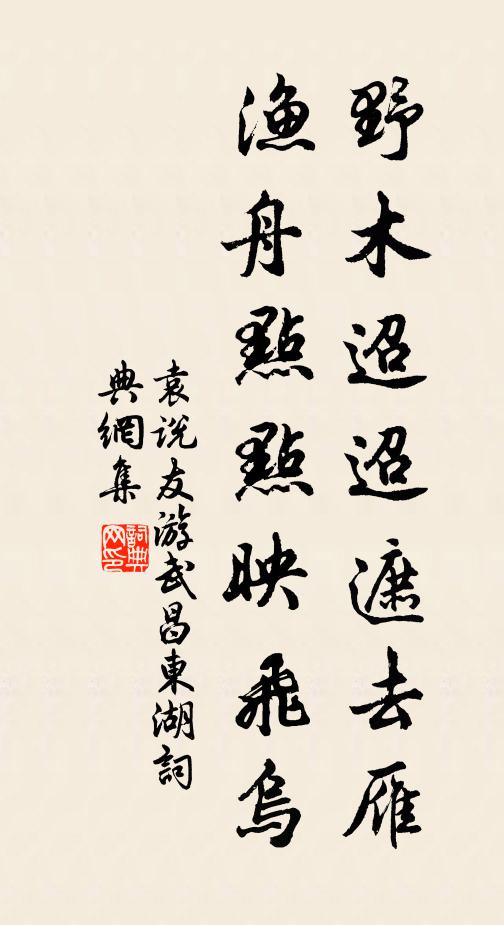 野木迢迢遮去雁
漁舟點點映飛烏
袁說友游武昌東湖詞
典網集
詞典網印